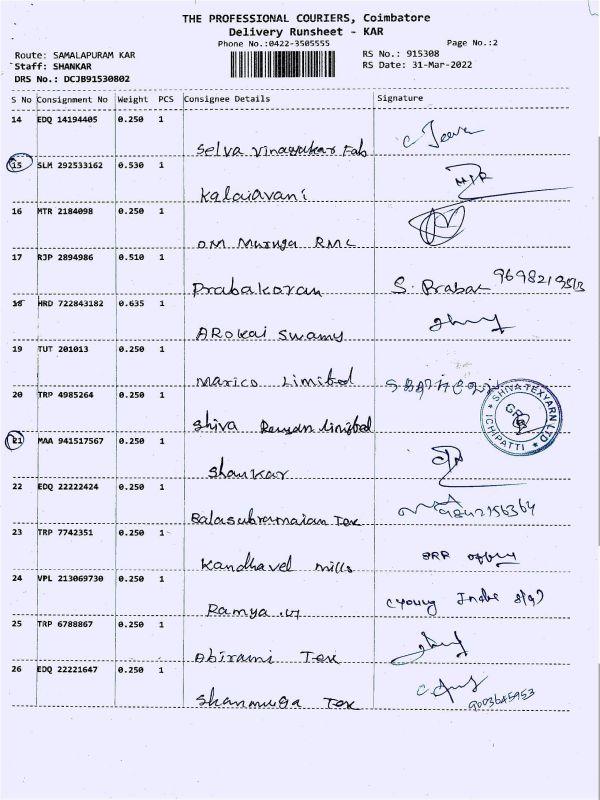 THE PROFESSIONAL COURIERS, Coimbatore
Delivery Runsheet - KAR
Phone No.:0422-3505555 Page No.:2
Route: SAMALAPURAM KAR RS No.: 915308
Staff: SHANKAR RS Date: 31-Mar-2022
DRS No.: DCJB91530802
S No Consignment No Weight PCS Consignee Details Signature
14 EDQ 14194405 0.250 1
Selva Vinayakar Fab
15 SLM 292533162 0.530 1
Kalaiavani MJR
16 MTR 2184098 0.250 1
O.M Muruga RMC
17 RJP 2894986 0.510 1
Prabakaran S. Praba
18 HRD 722843182 0.635 1
ARokai Swamy
19 TUT 201013 0.250 1
Marico Limited
20 TRP 4985264 0.250 1
Shiva Limited
SHIVA TEXYARN LTD
ICHIPATTI
21 MAA 941517567 0.250 1
Shankar
22 EDQ 22222424 0.250 1
Balasubramaian Tex
23 TRP 7742351 0.250 1
Kandhavel mills
24 VPL 213069730 0.250 1
Ramya
25 TRP 6788867 0.250 1
Abirami Tex
26 EDQ 22221647 0.250 1
Shanmuga Tex 9003645953